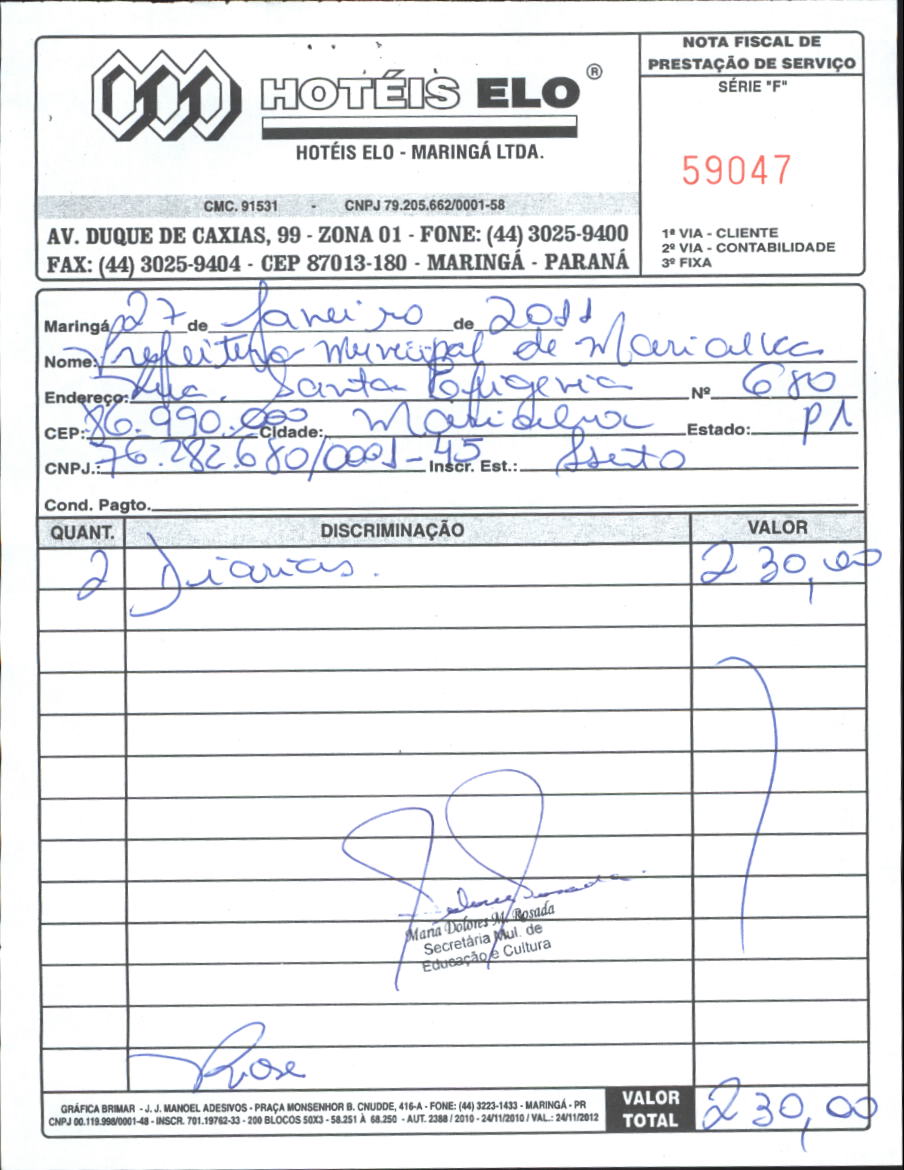 HOTÉIS ELO ®
HOTÉIS ELO - MARINGÁ LTDA.
CMC. 91531 - CNPJ 79.205.662/0001-58
AV. DUQUE DE CAXIAS, 99 - ZONA 01 - FONE: (44) 3025-9400
FAX: (44) 3025-9404 - CEP 87013-180 - MARINGÁ - PARANÁ
NOTA FISCAL DE
PRESTAÇÃO DE SERVIÇO
SÉRIE "F"
59047
1ª VIA - CLIENTE
2ª VIA - CONTABILIDADE
3ª FIXA
Maringá 27 de Janeiro de 2011
Nome: Prefeitura Municipal de Marialva
Endereço: Rua. Santa Efigenia Nº 680
CEP: 86.990.000 Cidade: Marialva Estado: PR
CNPJ.: 76.282.680/0001-45 Inscr. Est.: Isento
Cond. Pagto.
QUANT. DISCRIMINAÇÃO VALOR
2 Diárias. 230,00
Maria Dolores M. Rosada
Secretária Mul. de
Educação e Cultura
Rose
GRÁFICA BRIMAR - J. J. MANOEL ADESIVOS - PRAÇA MONSENHOR B. CNUDDE, 416-A - FONE: (44) 3223-1433 - MARINGÁ - PR
CNPJ 00.119.998/0001-48 - INSCR. 701.19762-33 - 200 BLOCOS 50X3 - 58.251 À 68.250 - AUT. 2388 / 2010 - 24/11/2010 / VAL.: 24/11/2012
VALOR TOTAL 230,00